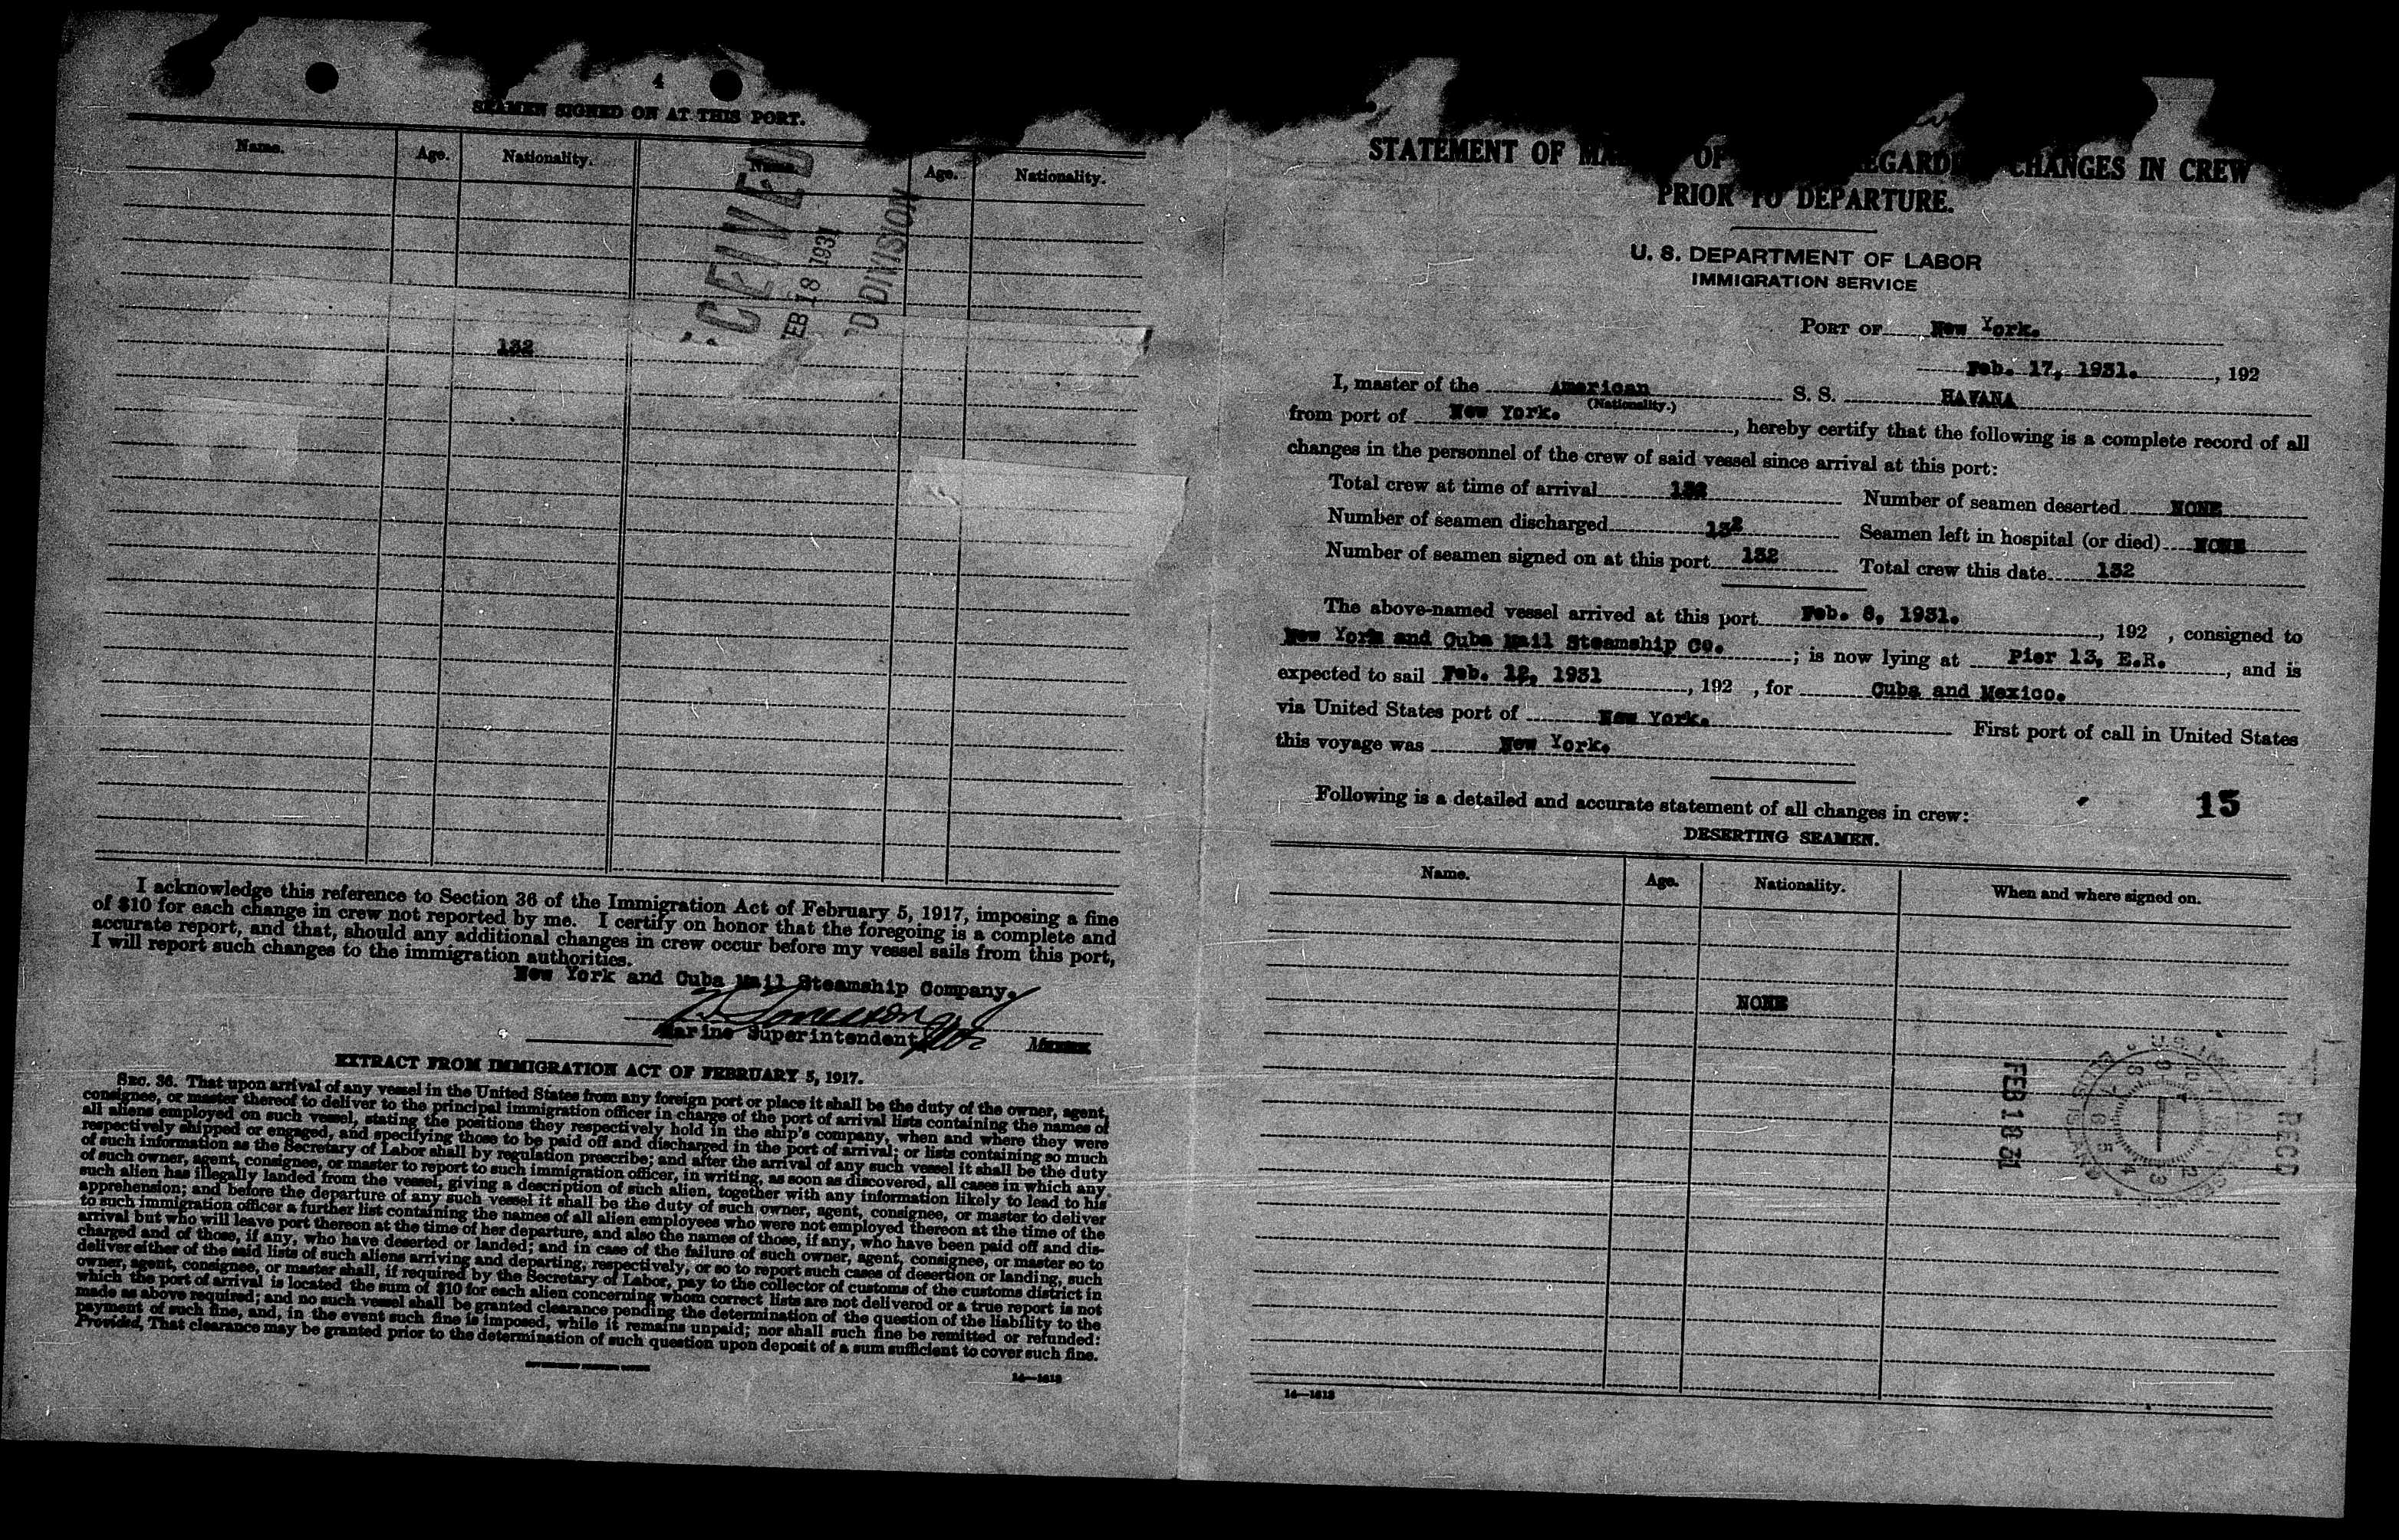 4
SEAMEN SIGNED ON AT THIS PORT.
Name. Age. Nationality. Name. Age. Nationality.
CEIVED
EB 18 1931
DIVISION
132
I acknowledge this reference to Section 36 of the Immigration Act of February 5, 1917, imposing a fine
of $10 for each change in crew not reported by me. I certify on honor that the foregoing is a complete and
accurate report, and that, should any additional changes in crew occur before my vessel sails from this port,
I will report such changes to the immigration authorities.
New York and Cuba Mail Steamship Company.
Marine Superintendent
Master
EXTRACT FROM IMMIGRATION ACT OF FEBRUARY 5, 1917.
SEC. 36. That upon arrival of any vessel in the United States from any foreign port or place it shall be the duty of the owner, agent,
consignee, or master thereof to deliver to the principal immigration officer in charge of the port of arrival lists containing the names of
all aliens employed on such vessel, stating the positions they respectively hold in the ship's company, when and where they were
respectively shipped or engaged, and specifying those to be paid off and discharged in the port of arrival; or lists containing so much
of such information as the Secretary of Labor shall by regulation prescribe; and after the arrival of any such vessel it shall be the duty
of such owner, agent, consignee, or master to report to such immigration officer, in writing, as soon as discovered, all cases in which any
such alien has illegally landed from the vessel, giving a description of such alien, together with any information likely to lead to his
apprehension; and before the departure of any such vessel it shall be the duty of such owner, agent, consignee, or master to deliver
to such immigration officer a further list containing the names of all alien employees who were not employed thereon at the time of the
arrival but who will leave port thereon at the time of her departure, and also the names of those, if any, who have been paid off and dis-
charged and of those, if any, who have deserted or landed; and in case of the failure of such owner, agent, consignee, or master so to
deliver either of the said lists of such aliens arriving and departing, respectively, or so to report such cases of desertion or landing, such
owner, agent, consignee, or master shall, if required by the Secretary of Labor, pay to the collector of customs of the customs district in
which the port of arrival is located the sum of $10 for each alien concerning whom correct lists are not delivered or a true report is not
made as above required; and no such vessel shall be granted clearance pending the determination of the question of the liability to the
payment of such fine, and, in the event such fine is imposed, while it remains unpaid; nor shall such fine be remitted or refunded:
Provided, That clearance may be granted prior to the determination of such question upon deposit of a sum sufficient to cover such fine.
GOVERNMENT PRINTING OFFICE
14—1613
STATEMENT OF MA OF EGARDI CHANGES IN CREW
PRIOR TO DEPARTURE.
U. S. DEPARTMENT OF LABOR
IMMIGRATION SERVICE
PORT OF New York.
Feb. 17, 1931. , 192
I, master of the American S. S. HAVANA
(Nationality.)
from port of New York. , hereby certify that the following is a complete record of all
changes in the personnel of the crew of said vessel since arrival at this port:
Total crew at time of arrival 132 Number of seamen deserted NONE
Number of seamen discharged 132 Seamen left in hospital (or died) NONE
Number of seamen signed on at this port 132 Total crew this date 132
The above-named vessel arrived at this port Feb. 8, 1931. , 192 , consigned to
New York and Cuba Mail Steamship Co. ; is now lying at Pier 13, E.R. , and is
expected to sail Feb. 12, 1931 , 192 , for Cuba and Mexico.
via United States port of New York. First port of call in United States
this voyage was New York.
Following is a detailed and accurate statement of all changes in crew:
15
DESERTING SEAMEN.
Name. Age. Nationality. When and where signed on.
NONE
FEB 18 31
RECD
14—1613